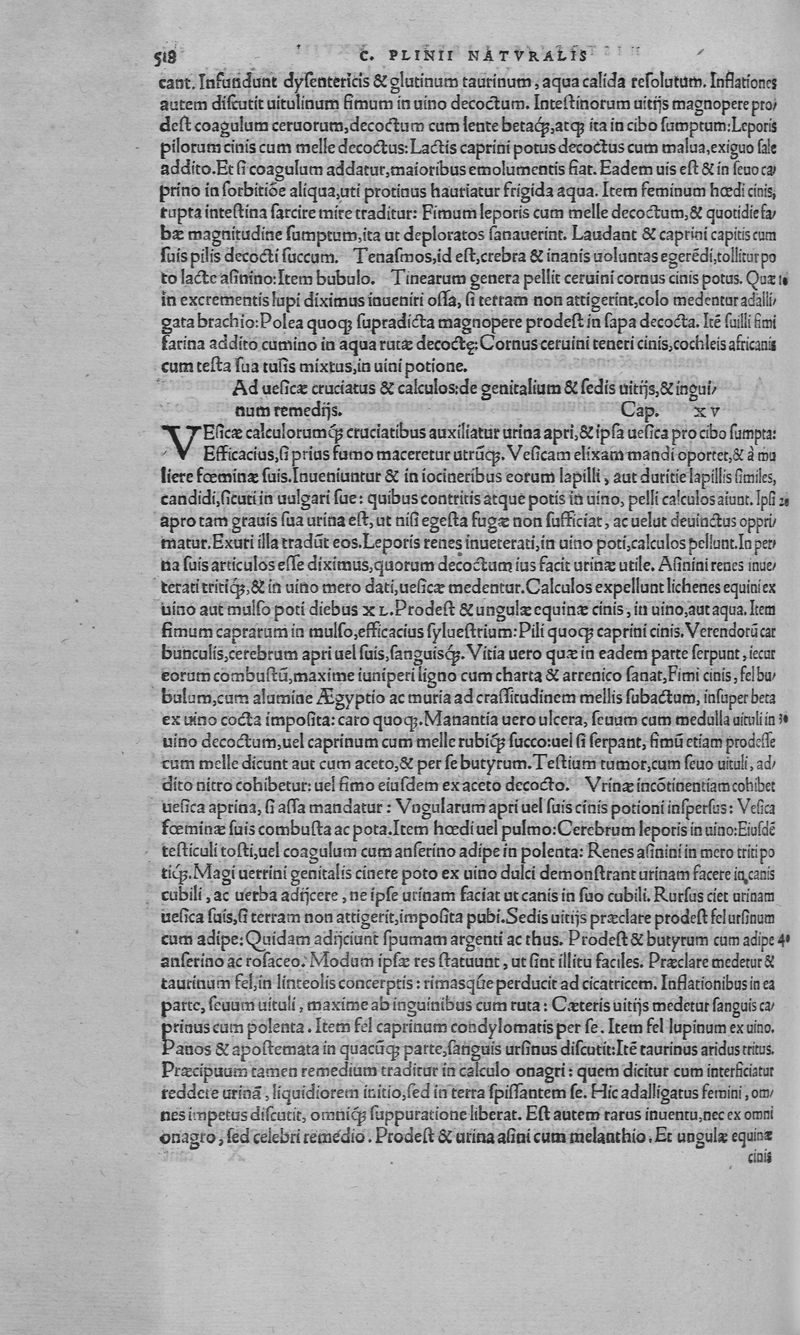 518 C. PLINII NATVRALIS
cant. Infundunt dyſentericis & glutinum taurinum, aqua calida reſolutum. Inflationes
autem diſcutit uitulinum fimum in uino decoctum. Inteſtinorum uitijs magnopere pro/
deſt coagulum ceruorum, decoctum cum lente betaq́;, atq; ita in cibo ſumptum: Leporis
pilorum cinis cum melle decoctus: Lactis caprini potus decoctus cum malua, exiguo ſale
addito. Et ſi coagulum addatur, maioribus emolumentis fiat. Eadem uis eſt & in ſeuo ca/
prino in ſorbitióe aliqua, uti protinus hauriatur frigida aqua. Item feminum hœdi cinis,
rupta inteſtina ſarcire mire traditur: Fimum leporis cum melle decoctum, & quotidie fa/
bæ magnitudine ſumptum, ita ut deploratos ſanauerint. Laudant & caprini capitis cum
ſuis pilis decocti ſuccum. Tenaſmos, id eſt, crebra & inanis uoluntas egerédi, tollitur po
to lacte aſinino: Item bubulo. Tinearum genera pellit ceruini cornus cinis potus. Quæ 10
in excrementis lupi diximus inueniri oſſa, ſi terram non attigerint, colo medentur adalli/
gata brachio: Polea quoq; ſupradicta magnopere prodeſt in ſapa decocta. Ité ſuilli fimi
farina addito cumino in aqua rutæ decoctę: Cornus ceruini teneri cinis, cochleis africanis
cum teſta ſua tuſis mixtus, in uini potione.
Ad ueſicæ cruciatus & calculos: de genitalium & ſedis uitijs, & ingui/
num remedijs. Cap. xv
VEſicæ calculorumq́; cruciatibus auxiliatur urina apri, & ipſa ueſica pro cibo ſumpta:
Efficacius, ſi prius fumo maceretur utrūq;. Veſicam elixam mandi oportet, & à mu
liere fœminæ ſuis. Inueniuntur & in iocineribus eorum lapilli, aut duritie lapillis ſimiles,
candidi, ſicuti in uulgari ſue: quibus contritis atque potis in uino, pelli calculos aiunt. Ipſi 20
apro tam grauis ſua urina eſt, ut niſi egeſta fugæ non ſufficiat, ac uelut deuinctus oppri/
matur. Exuri illa tradūt eos. Leporis renes inueterati, in uino poti, calculos pellunt. In per/
na ſuis articulos eſſe diximus, quorum decoctum ius facit urinæ utile. Aſinini renes inue/
terati tritiq́;, & in uino mero dati, ueſicæ medentur. Calculos expellunt lichenes equini ex
uino aut mulſo poti diebus XL. Prodeſt & ungulæ equinæ cinis, in uino, aut aqua. Item
fimum caprarum in mulſo, efficacius ſylueſtrium: Pili quoq; caprini cinis. Verendorū car
bunculis, cerebrum apri uel ſuis, ſanguisq́;. Vitia uero quæ in eadem parte ſerpunt, iecur
eorum combuſtū, maxime iuniperi ligno cum charta & arrenico ſanat, Fimi cinis, fel bu/
bulum, cum alumine Ægyptio ac muria ad craſſitudinem mellis ſubactum, inſuper beta
ex uino cocta impoſita: caro quoq;. Manantia uero ulcera, ſeuum cum medulla uituli in 30
uino decoctum, uel caprinum cum melle rubiq́; ſucco: uel ſi ſerpant, fimū etiam prodeſſe
cum melle dicunt aut cum aceto, & per ſe butyrum. Teſtium tumor, cum ſeuo uituli, ad/
dito nitro cohibetur: uel fimo eiuſdem ex aceto decocto. Vrinæ incōtinentiam cohibet
ueſica aprina, ſi aſſa mandatur: Vngularum apri uel ſuis cinis potioni inſperſus: Veſica
fœminæ ſuis combuſta ac pota. Item hœdi uel pulmo: Cerebrum leporis in uino: Eiuſdé
teſticuli toſti, uel coagulum cum anſerino adipe in polenta: Renes aſinini in mero triti po
tiq́;. Magi uerrini genitalis cinere poto ex uino dulci demonſtrant urinam facere in canis
cubili, ac uerba adijcere, ne ipſe urinam faciat ut canis in ſuo cubili. Rurſus ciet urinam
ueſica ſuis, ſi terram non attigerit, impoſita pubi. Sedis uitijs præclare prodeſt fel urſinum
cum adipe: Quidam adijciunt ſpumam argenti ac thus. Prodeſt & butyrum cum adipe 40
anſerino ac roſaceo. Modum ipſæ res ſtatuunt, ut ſint illitu faciles. Præclare medetur &
taurinum fel, in linteolis concerptis: rimasq́ue perducit ad cicatricem. Inflationibus in ea
parte, ſeuum uituli, maxime ab inguinibus cum ruta: Cæteris uitijs medetur ſanguis ca/
prinus cum polenta. Item fel caprinum condylomatis per ſe. Item fel lupinum ex uino.
Panos & apoſtemata in quacūq; parte, ſanguis urſinus diſcutit: Ité taurinus aridus tritus.
Præcipuum tamen remedium traditur in calculo onagri: quem dicitur cum interficiatur
reddere urinā, liquidiorem initio, ſed in terra ſpiſſantem ſe. Hic adalligatus femini, om/
nes impetus diſcutit, omniq́; ſuppuratione liberat. Eſt autem rarus inuentu, nec ex omni
onagro, ſed celebri remedio. Prodeſt & urina aſini cum melanthio. Et ungulæ equinæ
cinis